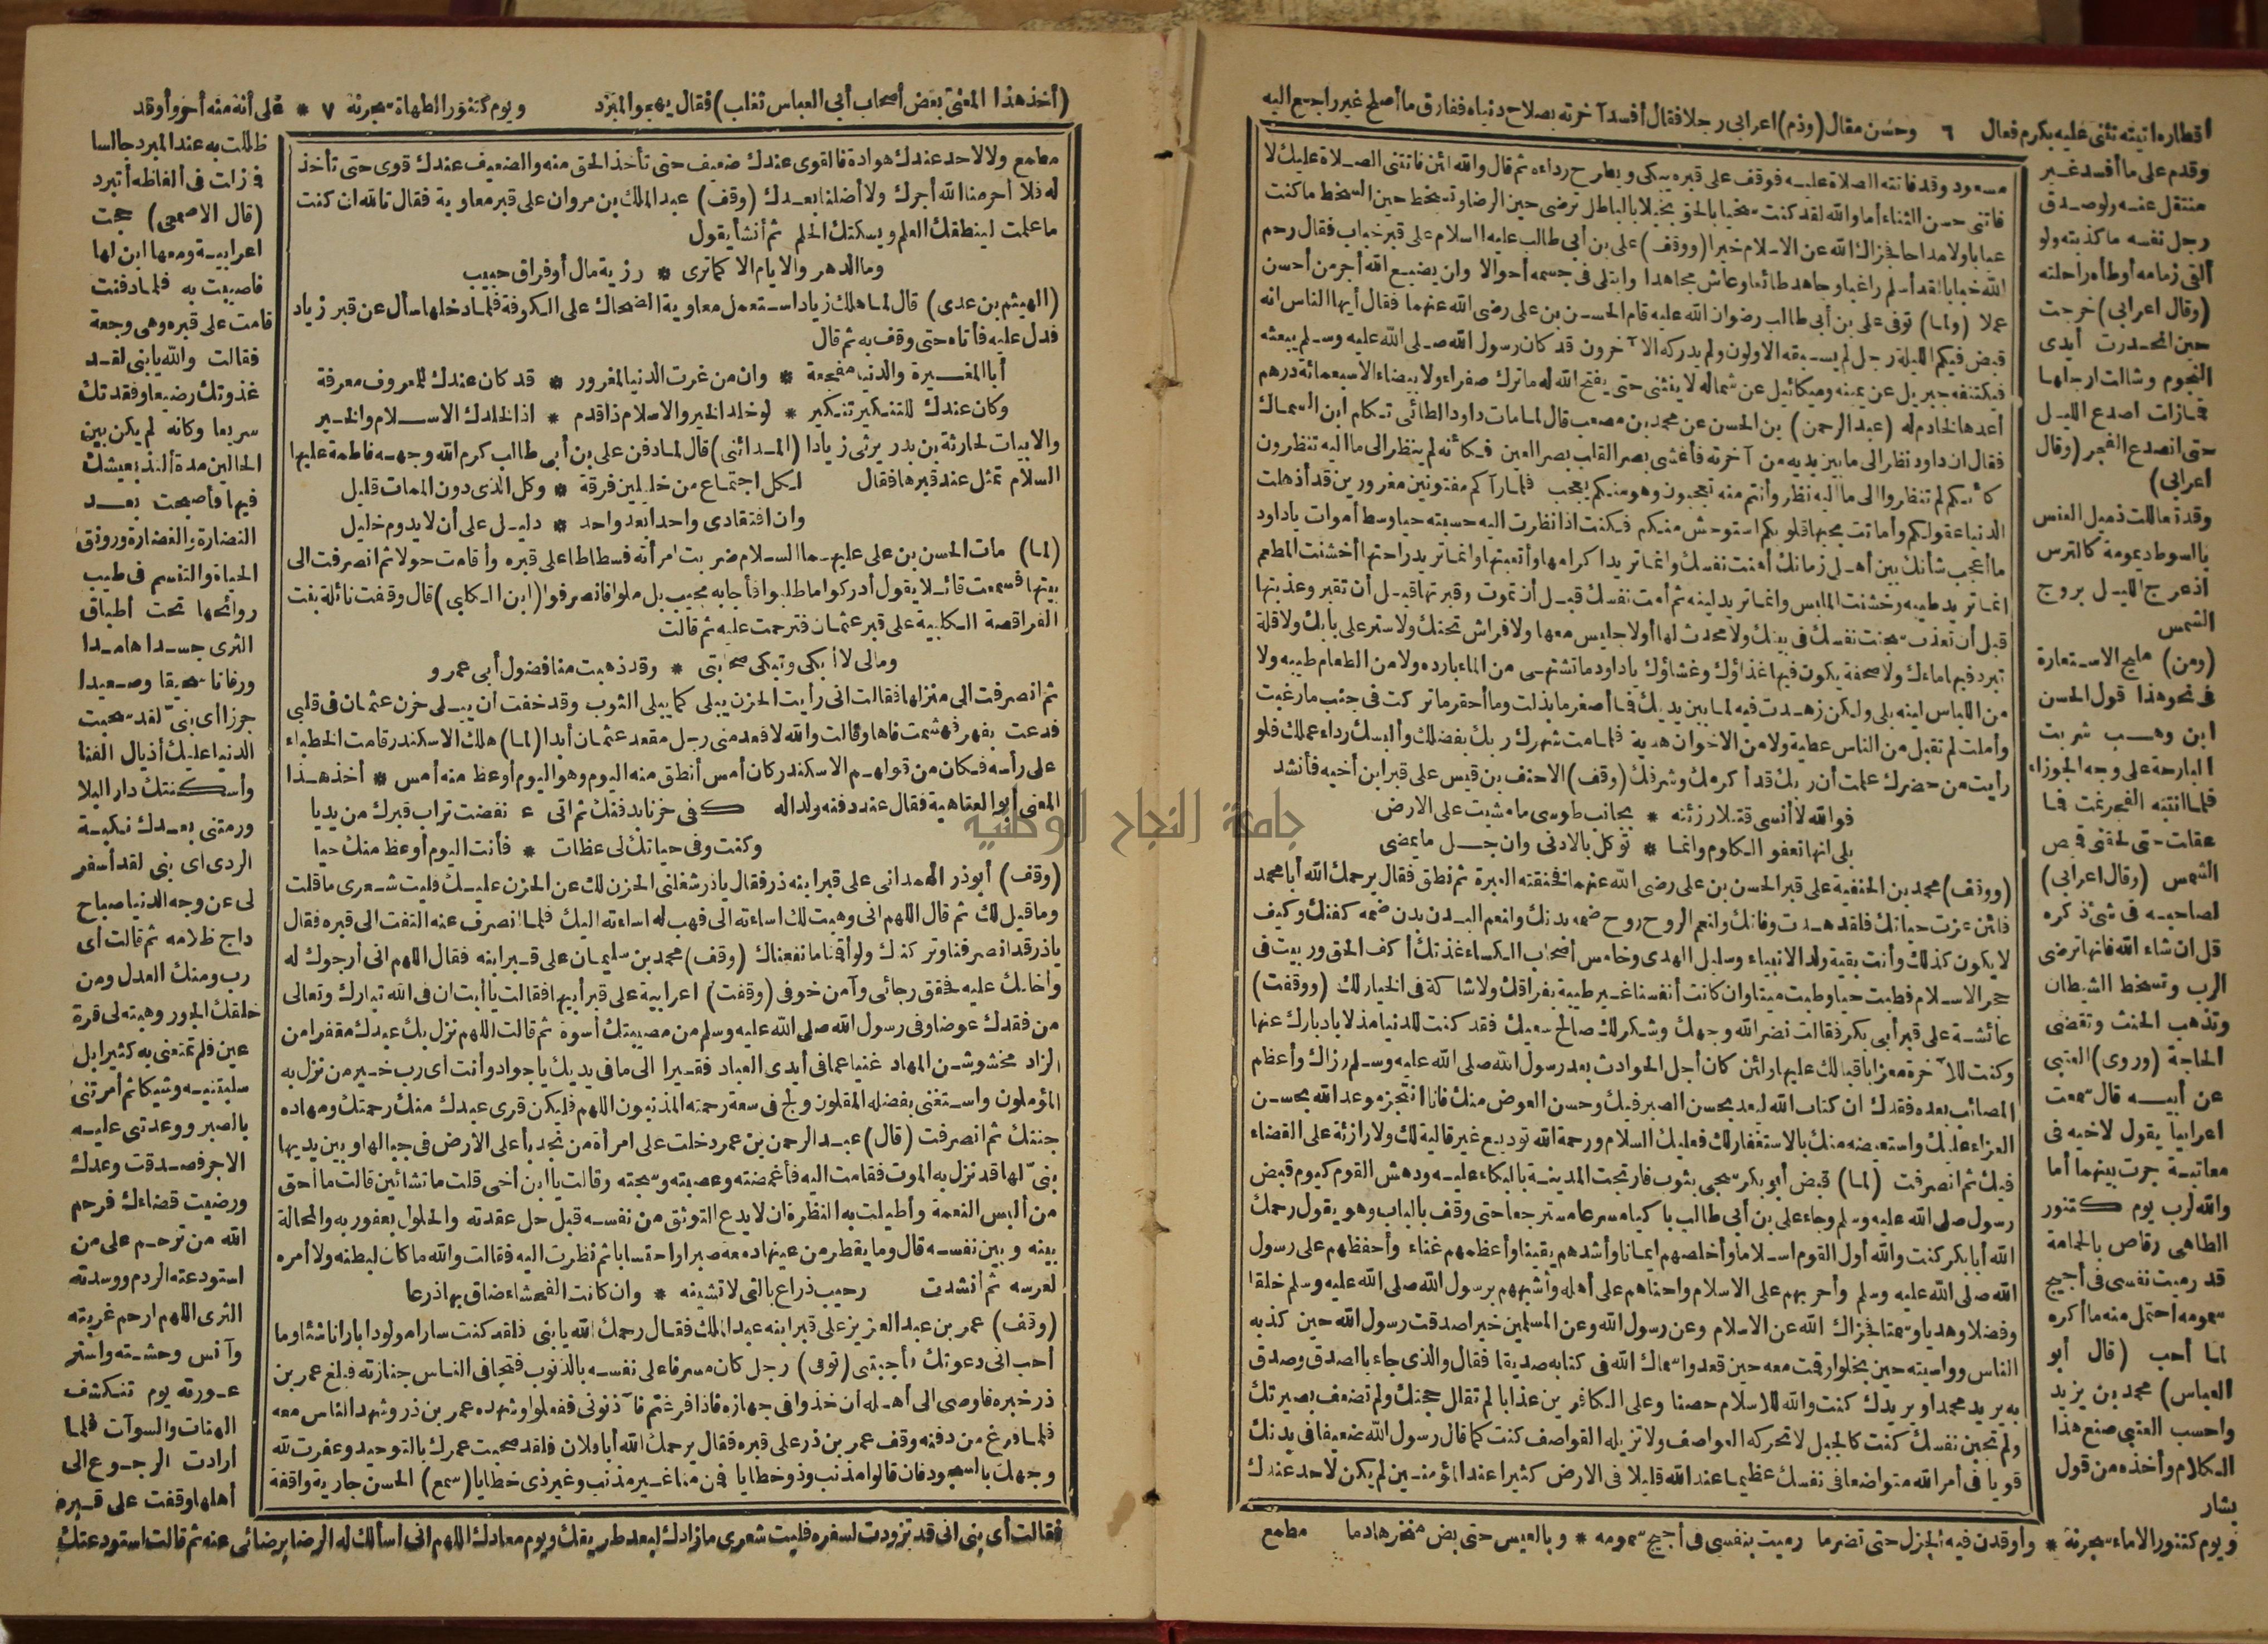 اقطاره انيته تثنى عليه بكرم فعال ٦ وحسن مقال (وذم) اعرابى رجلا فقال أفسد آخرته بصلاح دنياه ففارق ما أصلح غير راجع اليه
وقدم على ما أفسد غير
منتقل عنه ولو صدق
رجل نفسه ما كذبته ولو
ألقى زمامه أوطأه راحلته
(وقال اعرابى) خرجت
حين انحدرت أيدى
النجوم وشالت ارجلها
فمازات اصدع الليل
حتى انصدع الفجر (وقال
اعرابى)
وقد تعاللت ذميل العنس
بالسوط ديمومة كالترس
اذ عرج الليل بروج
الشمس
(ومن) مليح الاستعارة
فى نحو هذا قول الحسن
ابن وهب شربت
البارحة على وجه الجوزاء
فلما انتبه الفجر نمت فما
عقلت حتى لحقنى قميص
الشمس (وقال اعرابى)
لصاحبه فى شئ ذكره
قل ان شاء الله فانها ترضى
الرب وتسخط الشيطان
وتذهب الحنث وتقضى
الحاجة (وروى) العتبى
عن أبيه قال سمعت
اعرابيا يقول لاخيه فى
معاتبة جرت بينهما أما
والله لرب يوم كتنور
الطاهى رقاص بالحمامة
قد رميت نفسى فى أجيج
سمومه احتمل منه ما أكره
لما أحب (قال أبو
العباس) محمد بن يزيد
واحسب العتبى صنع هذا
الكلام وأخذه من قول
بشار
ويوم كتنور الاماء سجرنه * وأوقدن فيه الجزل حتى تضرما رميت بنفسى فى أجيج سمومه * وبالعيس حتى بض منخرها دما
مسعود وقد فاتته الصلاة عليه فوقف على قبره يبكى ويطرح رداءه ثم قال والله لئن فاتتنى الصلاة عليك لا
فاتنى حسن الثناء أما والله لقد كنت سخيا بالحق بخيلا بالباطل ترضى حين الرضا وتسخط حين السخط ما كنت
عيابا ولا مداحا فجزاك الله عن الاسلام خيرا (ووقف) على بن أبى طالب عليه السلام على قبر خباب فقال رحم
الله خبابا لقد أسلم راغبا وجاهد طائعا وعاش مجاهدا وابتلى فى جسمه أحوالا وان يضيع الله أجر من أحسن
عملا (ولما) توفى على بن أبى طالب رضوان الله عليه قام الحسن بن على رضى الله عنهما فقال أيها الناس انه
قبض فيكم الليلة رجل لم يسبقه الاولون ولم يدركه الآخرون قد كان رسول الله صلى الله عليه وسلم يبعثه
فيكتنفه جبريل عن يمينه وميكائيل عن شماله لا ينثنى حتى يفتح الله له ما ترك صفراء ولا بيضاء الا سبعمائة درهم
أعدها لخادم له (عبد الرحمن) بن الحسن عن محمد بن مصعب قال لما مات داود الطائى تكلم ابن السماك
فقال ان داود نظر الى ما بين يديه من آخرته فأغشى بصر القلب بصر العين فكأنه لم ينظر الى ما اليه تنظرون
كأنكم لم تنظروا الى ما اليه نظر وأنتم منه تعجبون وهو منكم يعجب فلما رآكم مفتونين مغرورين قد أذهلت
الدنيا عقولكم وأماتت بحبها قلوبكم استوحش منكم فكنت اذا نظرت اليه حسبته حيا وسط أموات ياداود
ما أعجب شأنك بين أهل زمانك أهنت نفسك وانما تريد اكرامها وأتعبتها وانما تريد راحتها أخشنت المطعم
انما تريد طيبه وخشنت الملبس وانما تريد لينه ثم أمت نفسك قبل أن تموت وقبرتها قبل أن تقبر وعذبتها
قبل أن تعذب سجنت نفسك فى بيتك ولا محدث لها أولا جليس معها ولا فراش تحتك ولا ستر على بابك ولا قلة
تبرد فيها ماءك ولا صحفة يكون فيها غذاؤك وعشاؤك ياداود ما تشتهى من الماء بارده ولا من الطعام طيبه ولا
من اللباس لينه بلى ولكن زهدت فيه لما بين يديك فما أصغر ما بذلت وما أحقر ما تركت فى جنب ما رغبت
وأملت لم تقبل من الناس عطية ولا من الاخوان هدية فلما مت شهرك ربك بفضلك وألبسك رداء عملك فلو
رأيت من حضرك علمت أن ربك قد أكرمك وشرفك (وقف) الاحنف بن قيس على قبر ابن أخيه فأنشد
فوالله لا أنسى قتيلا رزئته * بجانب طوسى ما مشيت على الارض
بلى انها تعفو الكلوم وانما * نوكل بالادنى وان جل ما يمضى
(ووقف) محمد بن الحنفية على قبر الحسن بن على رضى الله عنهما فخنقته العبرة ثم نطق فقال يرحمك الله أبا محمد
فلئن عزت حياتك فلقد هدت وفاتك ولنعم الروح روح ضمه بدنك ولنعم البدن بدن ضمه كفنك وكيف
لا يكون كذلك وأنت بقية ولد الانبياء وسليل الهدى وخامس أصحاب الكساء غذتك أكف الحق وربيت فى
حجر الاسلام فطبت حيا وطبت ميتا وان كانت أنفسنا غير طيبة بفراقك ولا شاكة فى الخيار لك (ووقفت)
عائشة على قبر أبى بكر فقالت نضر الله وجهك وشكر لك صالح سعيك فقد كنت للدنيا مذلا بادبارك عنها
وكنت للآخرة معزا باقبالك عليها ولئن كان أجل الحوادث بعد رسول الله صلى الله عليه وسلم رزاك وأعظم
المصائب بعده فقدك ان كتاب الله ليعد بحسن الصبر فيك وحسن العوض منك فانا انتجز موعد الله بحسن
العزاء عليك واستعيضه منك بالاستغفار لك فعليك السلام ورحمة الله توديع غير قالية لك ولا رازئة على القضاء
فيك ثم انصرفت (لما) قبض أبو بكر سجى بثوب فارتجت المدينة بالبكاء عليه ودهش القوم كيوم قبض
رسول صلى الله عليه وسلم وجاء على بن أبى طالب باكيا مسرعا مسترجعا حتى وقف بالباب وهو يقول رحمك
الله أبا بكر كنت والله أول القوم اسلاما وأخلصهم ايمانا وأشدهم يقينا وأعظمهم غناء وأحفظهم على رسول
الله صلى الله عليه وسلم وأحربهم على الاسلام واحناهم على أهله وأشبههم برسول الله صلى الله عليه وسلم خلقا
وفضلا وهديا وسمتا فجزاك الله عن الاسلام وعن رسول الله وعن المسلمين خيرا صدقت رسول الله حين كذبه
الناس وواسيته حين بخلوا وقمت معه حين قعدوا سماك الله فى كتابه صديقا فقال والذى جاء بالصدق وصدق
به يريد محمدا ويريدك كنت والله للاسلام حصنا وعلى الكافرين عذابا لم تفلل حجتك ولم تضعف بصيرتك
ولم تجبن نفسك كنت كالجبل لا تحركه العواصف ولا تزيله القواصف كنت كما قال رسول الله ضعيفا فى بدنك
قويا فى أمر الله متواضعا فى نفسك عظيما عند الله قليلا فى الارض كثيرا عند المؤمنين لم يكن لاحد عندك
مطمع
(أخذ هذا المعنى بعض أصحاب أبى العباس ثعلب) فقال يهجو المبرد ويوم كتنور الطهاة سجرته ٧ * على أنه منه أحر وأوقد
ظللت به عند المبرد جالسا
فما زلت فى ألفاظه أتبرد
(قال الاصمعى) حجت
اعرابية ومعها ابن لها
فاصيبت به فلما دفنت
قامت على قبره وهى وجعة
فقالت والله يابنى لقد
غذوتك رضيعا وفقدتك
سريعا وكأنه لم يكن بين
الحالين مدة ألتذ بعيشك
فيها فأصبحت بعد
النضارة والغضارة ورونق
الحياة والتنسم فى طيب
روائحها تحت أطباق
الثرى جسدا هامدا
ورفاتا سحيقا وصعيدا
جرزا أى بنى لقد سحبت
الدنيا عليك أذيال الفنا
وأسكنتك دار البلا
ورمتنى بعدك نكبة
الردى اى بنى لقد أسفر
لى عن وجه الدنيا صباح
داج ظلامه ثم قالت أى
رب ومنك العدل ومن
خلقك الجور وهبته لى قرة
عين فلم تمتعنى به كثيرا بل
سلبتنيه وشيكا ثم أمرتنى
بالصبر ووعدتنى عليه
الاجر فصدقت وعدك
ورضيت قضاءك فرحم
الله من ترحم على من
استودعته الردم ووسدته
الثرى اللهم ارحم غربته
وآنس وحشته واستر
عورته يوم تنكشف
الهنات والسوآت فلما
أرادت الرجوع الى
أهلها وقفت على قبره
فقالت أى بنى انى قد تزودت لسفرى فليت شعرى ما زادك لبعد طريقك ويوم معادك اللهم انى أسألك له الرضا برضائى عنه ثم قالت استودعتك
مطمع ولا لاحد عندك هوادة فالقوى عندك ضعيف حتى تأخذ الحق منه والضعيف عندك قوى حتى تأخذ
له فلا أحرمنا الله أجرك ولا أضلنا بعدك (وقف) عبد الملك بن مروان على قبر معاوية فقال تالله ان كنت
ما علمت لينطقك العلم ويسكتك الحلم ثم أنشأ يقول
وما الدهر والايام الا كما ترى * رزية مال أو فراق حبيب
(الهيثم بن عدى) قال لما هلك زياد استعمل معاوية الضحاك على الكوفة فلما دخلها سأل عن قبر زياد
فدل عليه فأتاه حتى وقف به ثم قال
أبا المغيرة والدنيا مفجعة * وان من غرت الدنيا لمغرور * قد كان عندك للمعروف معرفة
وكان عندك للتنكير تنكير * لو خلد الخير والاسلام ذا قدم * اذا لخلدك الاسلام والخير
والابيات لحارثة بن بدر يرثى زيادا (المدائنى) قال لما دفن على بن أبى طالب كرم الله وجهه فاطمة عليها
السلام تمثل عند قبرها فقال لكل اجتماع من خليلين فرقة * وكل الذى دون الممات قليل
وان افتقادى واحدا بعد واحد * دليل على أن لا يدوم خليل
(لما) مات الحسن بن على عليهما السلام ضربت امرأته فسطاطا على قبره وأقامت حولا ثم انصرفت الى
بيتها فسمعت قائلا يقول أدركوا ما طلبوا فأجابه مجيب بل ملوا فانصرفوا (ابن الكلبى) قال وقفت نائلة بنت
الفراقصة الكلبية على قبر عثمان فترحمت عليه ثم قالت
ومالى لا أبكى وتبكى صحابتى * وقد ذهبت منا فضول أبى عمرو
ثم انصرفت الى منزلها فقالت انى رأيت الحزن يبلى كما يبلى الثوب وقد خفت أن يبلى حزن عثمان فى قلبى
فدعت بفهر فهشمت فاها وقالت والله لا قعد منى رجل مقعد عثمان أبدا (لما) هلك الاسكندر قامت الخطباء
على رأسه فكان من قولهم الاسكندر كان أمس أنطق منه اليوم وهو اليوم أوعظ منه أمس * أخذ هذا
المعنى أبو العتاهية فقال عند دفنه ولدا له كفى حزنا بدفنك ثم انى * نفضت تراب قبرك من يديا
وكنت وفى حياتك لى عظات * فأنت اليوم أوعظ منك حيا
(وقف) أبو ذر الهمدانى على قبر ابنه ذر فقال ياذر شغلنى الحزن لك عن الحزن عليك فليت شعرى ما قلت
وما قيل لك ثم قال اللهم انى وهبت لك اساءته الى فهب له اساءته اليك فلما انصرف عنه التفت الى قبره فقال
ياذر قد انصرفنا وتركناك ولو أقمنا ما نفعناك (وقف) محمد بن سليمان على قبر ابنه فقال اللهم انى أرجوك له
وأخافك عليه فحقق رجائى وآمن خوفى (وقفت) اعرابية على قبر أبيها فقالت يا أبت ان فى الله تبارك وتعالى
من فقدك عوضا وفى رسول الله صلى الله عليه وسلم من مصيبتك أسوة ثم قالت اللهم نزل بك عبدك مقفرا من
الزاد مخشوشن المهاد غنيا عما فى أيدى العباد فقيرا الى ما فى يديك ياجواد وأنت أى رب خير من نزل به
المؤملون واستغنى بفضله المقلون ولج فى سعة رحمته المذنبون اللهم فليكن قرى عبدك منك رحمتك ومهاده
جنتك ثم انصرفت (قال) عبد الرحمن بن عمر دخلت على امرأة من نجد بأعلى الأرض فى خبائها وبين يديها
بنى لها قد نزل به الموت فقامت اليه فأغمضته وعصبته وسجته وقالت يا ابن أخى قلت ما تشائين قالت ما أحق
من ألبس النعمة وأطيلت به النظرة ان لا يدع التوثق من نفسه قبل حل عقدته والحلول بعفوربه والمحالة
بينه وبين نفسه قال وما يقطر من عينها دمعة صبرا واحتسابا ثم نظرت اليه فقالت والله ما كان لبطنه ولا أمره
لعرسه ثم أنشدت رحيب ذراع بالتى لا تشينه * وان كانت الفحشاء ضاق بها ذرعا
(وقف) عمر بن عبد العزيز على قبر ابنه عبد الملك فقال رحمك الله يابنى فلقد كنت سارا مولودا بارا ناشئا وما
أحب انى دعوتك فأجبتنى (توفى) رجل كان مسرفا على نفسه بالذنوب فتجافى الناس جنازته فبلغ عمر بن
ذر خبره فاوصى الى أهله أن خذوا فى جهازه فاذا فرغتم فآذنونى ففعلوا وشهده عمر بن ذر وشهد الناس معه
فلما فرغ من دفنه وقف عمر بن ذر على قبره فقال يرحمك الله أبا فلان فلقد صحبت عمرك بالتوحيد وعفرت لله
وجهك بالسجود فان قالوا مذنب وذو خطايا فمن منا غير مذنب وغير ذى خطايا (سمع) الحسن جارية واقفة
جامعة النجاح الوطنية